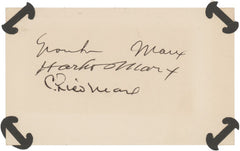 Groucho Marx
Harpo Marx
Chico Marx